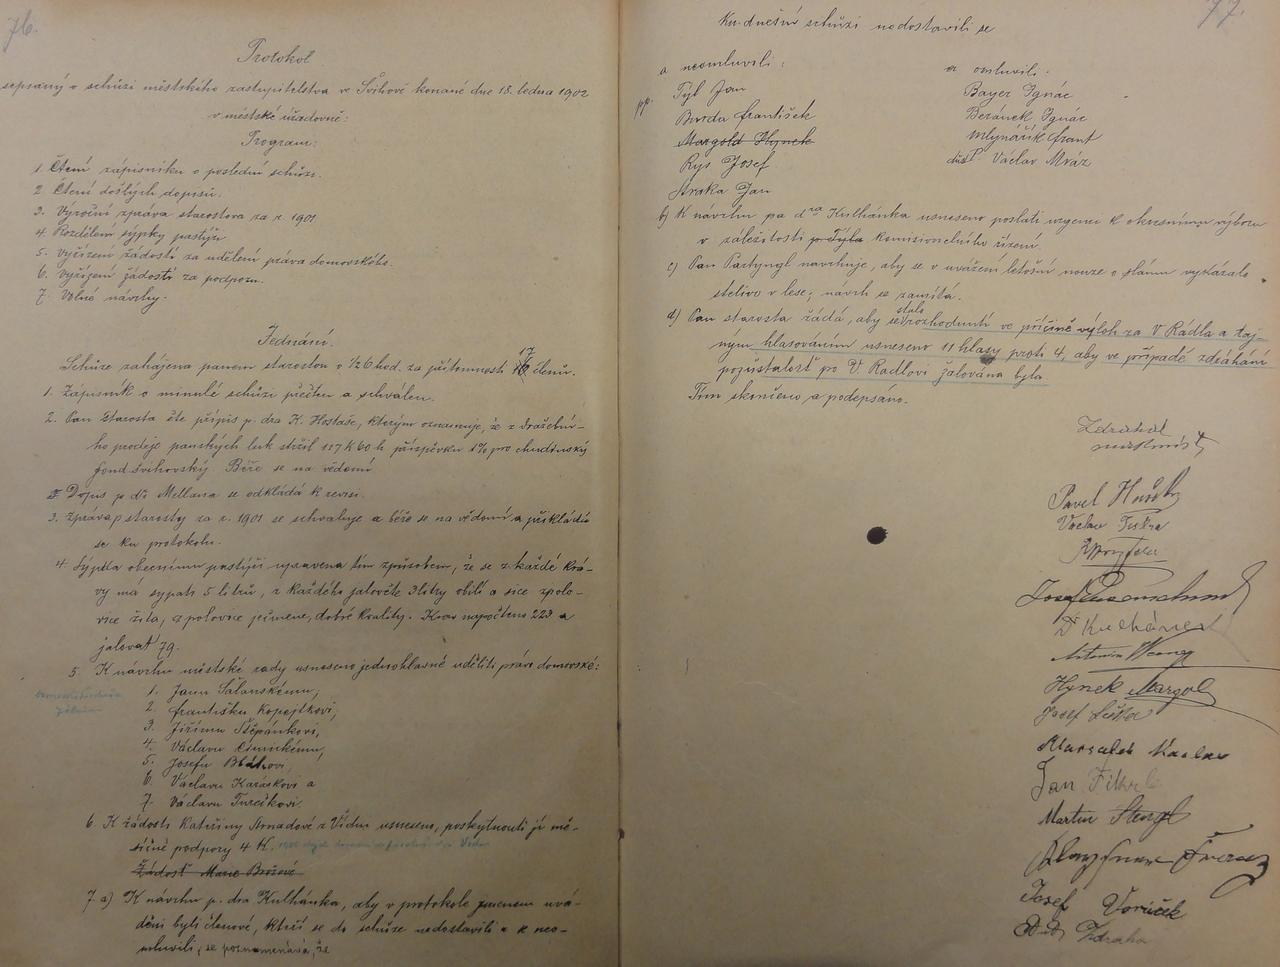 76.
Protokol
sepsaný o schůzi městského zastupitelstva ve Švihově konané dne 18. ledna 1902
v městské úřadovně:
Program:
1. Čtení zápisníku o poslední schůzi.
2. Čtení došlých dopisů.
3. Výroční zpráva starostova za r. 1901
4. Rozdělení sýpky pastýři
5. Vyřízení žádostí za udělení práva domovského.
6. Vyřízení žádostí za podporu.
7. Volné návrhy.
Jednání.
Schůze zahájena panem starostou o ½6 hod. za přítomnosti 17 členův.
1. Zápisník o minulé schůzi přečten a schválen.
2. Pan starosta čte přípis p. dra K. Hostaše, kterým oznamuje, že z dražební-
ho prodeje panských luk stržil 117 K 60 h příspěvku 1% pro chudinský
fond švihovský. Béře se na vědomí
Dopis p. dra Mellana se odkládá k revisi.
3. Zpráva p starosty za r. 1901 se schvaluje a béře se na vědomí a přikládá
se ku protokolu.
4. Sýpka obecnímu pastýři upravena tím způsobem, že se z každé krá-
vy má sypati 5 litrů, z každého jalověte 3 litry obilí a sice zpolo-
vice žita, z polovice ječmene, dobré kvality. Krav napočteno 223 a
jalovat 79.
5. K návrhu městské rady usneseno jednohlasně uděliti právo domovské:
1. Janu Šalanskému,
2. Františku Kopejtkovi,
3. Jiřímu Štěpánkovi,
4. Václavu Cimickému,
5. Josefu Bláhovi,
6. Václavu Karáskovi a
7. Václavu Turečkovi.
6. K žádosti Kateřiny Arnadové z Vídně usneseno, poskytnouti jí mě-
síčně podpory 4 K.
Žádost Marie Brožové
7. a) K návrhu p. dra Kulhánka, aby v protokole jmenem uvá-
děni byli členové, kteří se do schůze nedostavili a k neo-
mluvili, se poznamenává, že
77.
Ku dnešní schůzi nedostavili se
a neomluvili:
a omluvili:
pp. Týl Jan
Bayer Ignác
Burda František
Beránek Ignác
Margold Hynek
Mlynářík Frant
Rys Josef
důst P. Václav Mráz
Straka Jan
b) K návrhu pa dra Kulhánka usneseno poslati urgenci k okresnímu výboru
v záležitosti p. Týla komisionelního řízení.
c) Pan Partyngl navrhuje, aby se v uvážení letošní nouze o slámu vykázalo
stelivo v lese; návrh se zamítá.
d) Pan starosta žádá, aby se stalo rozhodnutí ve příčině výloh za V Rádla a taj-
ným hlasováním usneseno 11 hlasy proti 4, aby ve případě zdráhání
pozůstalost po V. Radlovi žalována byla
Tím skončeno a podepsáno.
Zdráhal
Pavel
Václav
Josef
Dr Kulhánek
Antonín
Hynek Margol
Josef
Václav
Jan
Martin Stengl
Josef Voráček
Zdráha